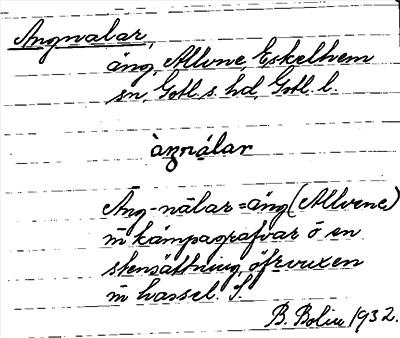 Angnalar,
äng, Allvne, Eskelhem
sn, Gotl. s. hd, Gotl. l.
àŋnálar
Äng-nālar = äng (Allvene)
m̄ kämpagrafvar ō en
stensättning öfvervuxen
m̄ hassel. S.
B. Bolin 1932.